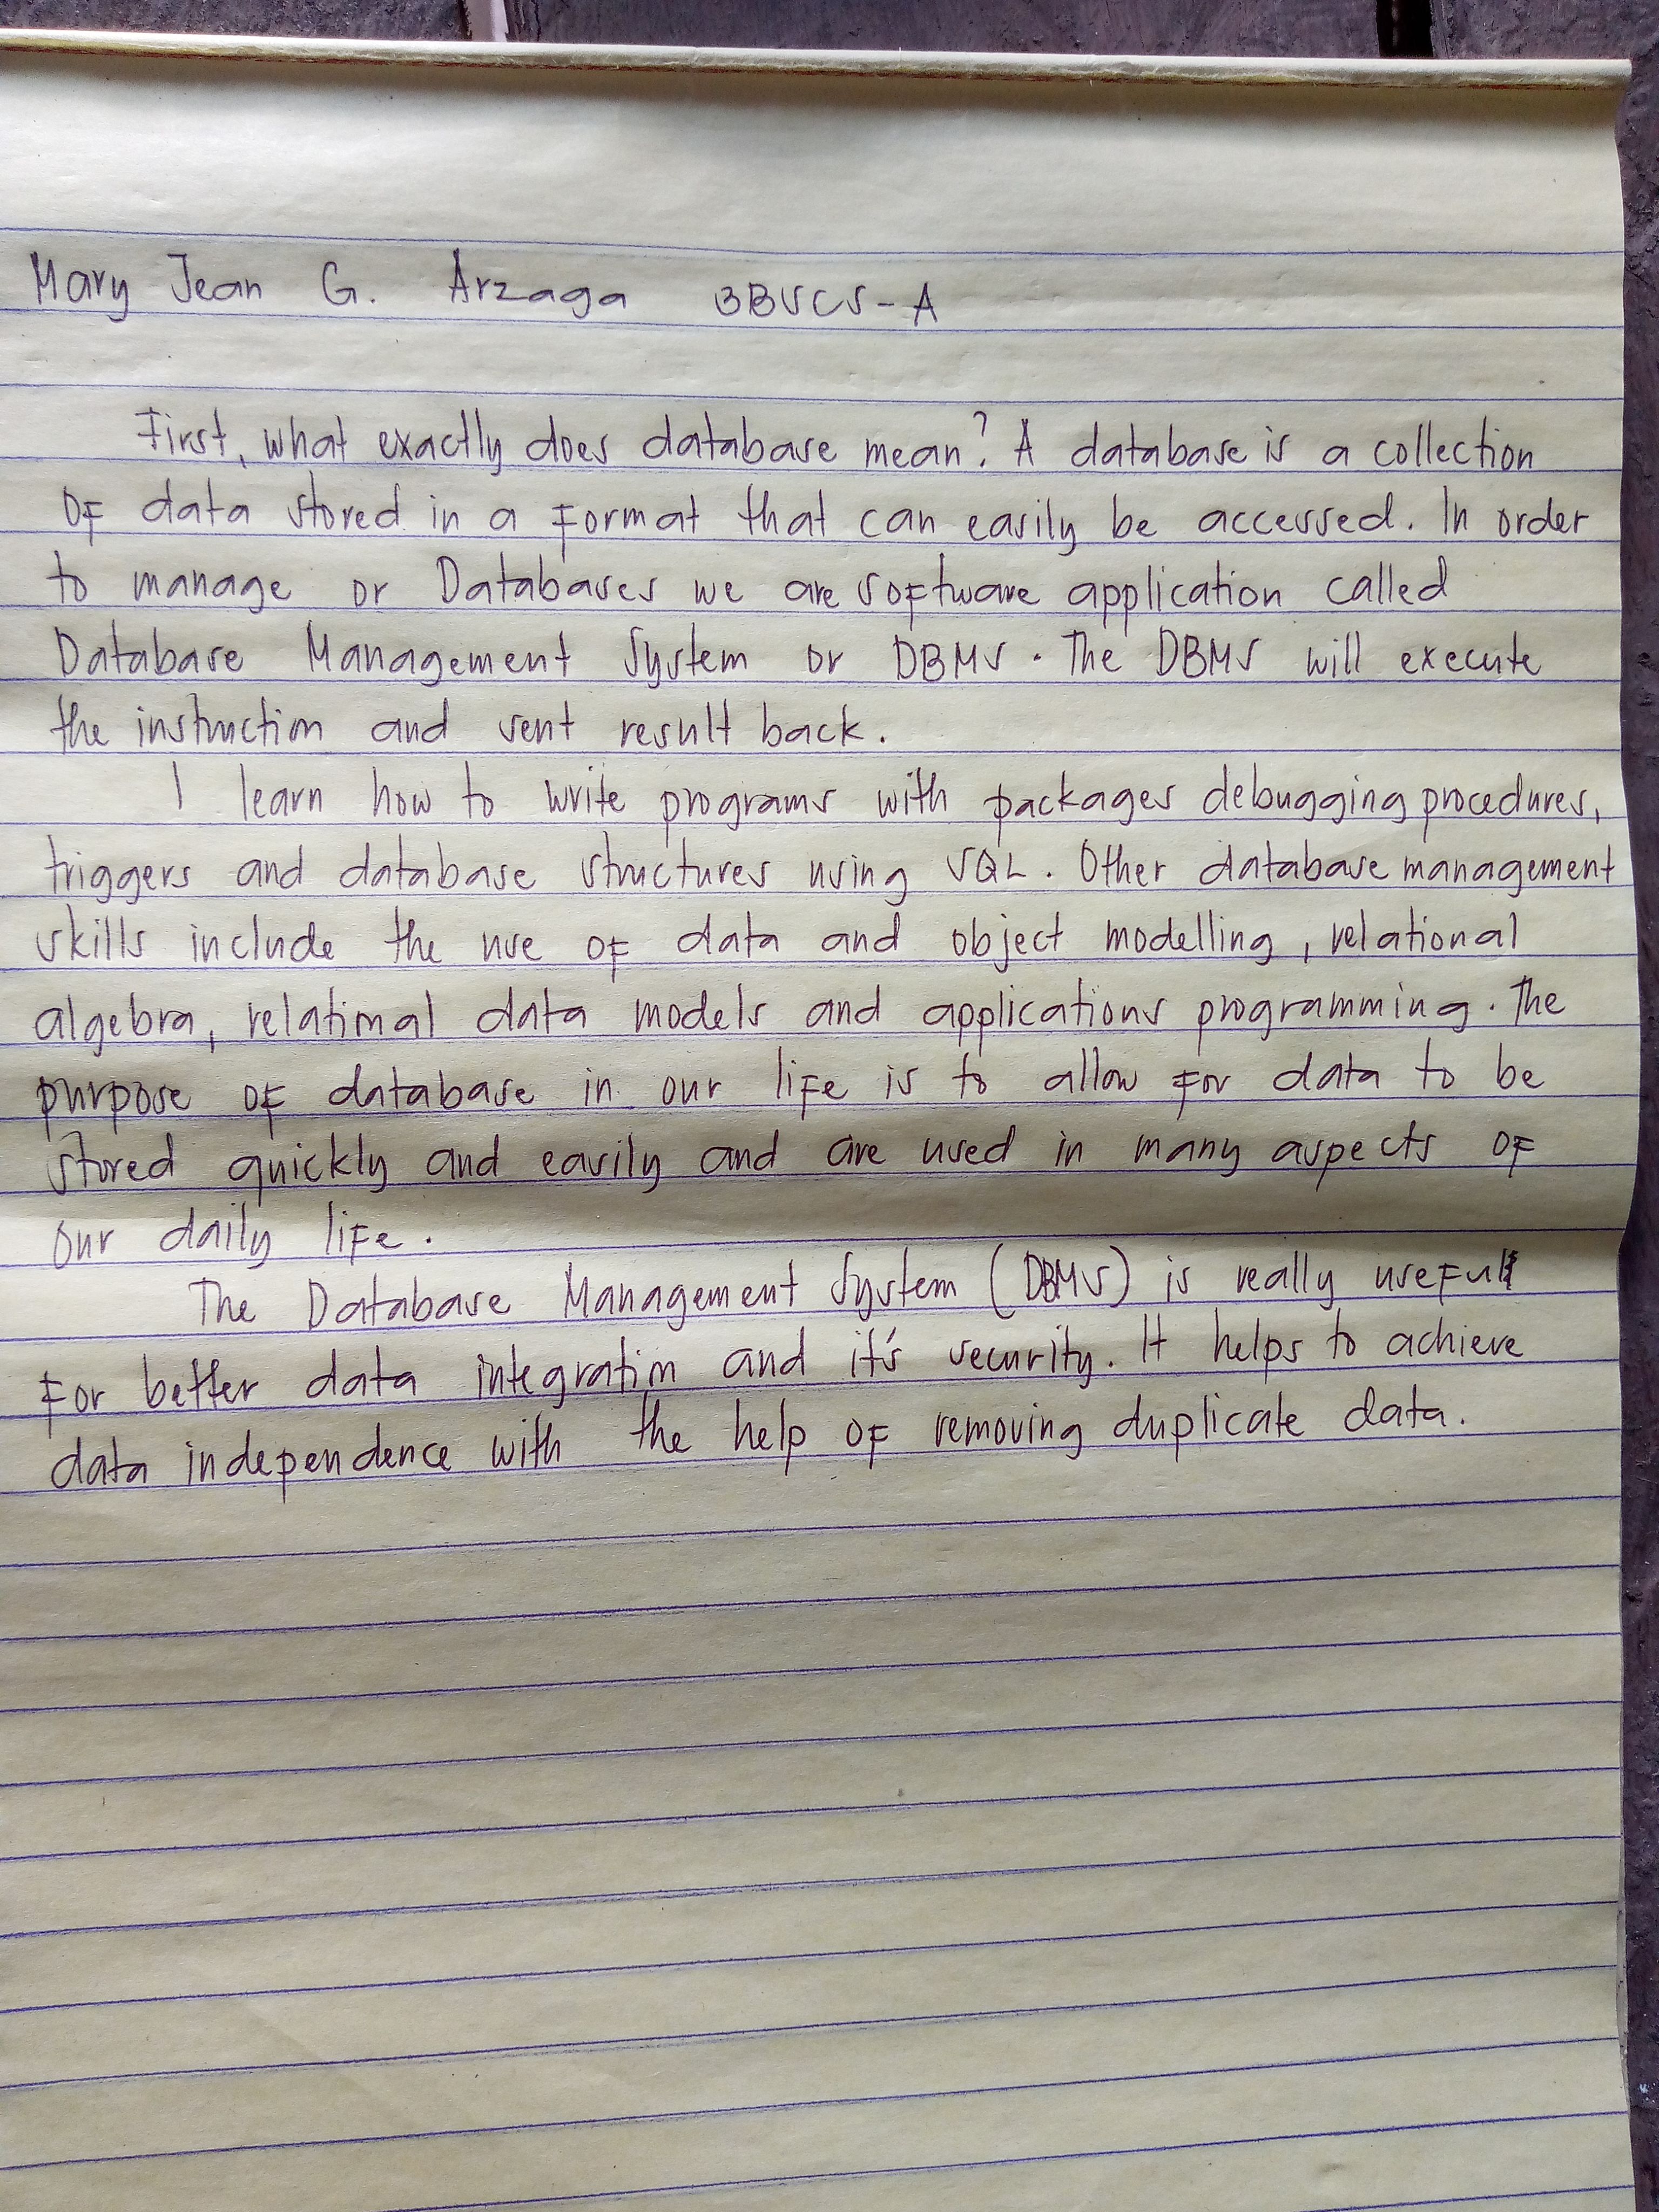 Mary Jean G. Arzaga 3BSCS-A
First, what exactly does database mean? A database is a collection
of data stored in a format that can easily be accessed. In order
to manage or Databases we are software application called
Database Management System or DBMS. The DBMS will execute
the instruction and sent result back.
I learn how to write programs with packages debugging procedures,
triggers and database structures using SQL. Other database management
skills include the use of data and object modelling, relational
algebra, relational data models and applications programming. The
purpose of database in our life is to allow for data to be
stored quickly and easily and are used in many aspects of
our daily life.
The Database Management System (DBMS) is really useful
for better data integration and it's security. It helps to achieve
data independence with the help of removing duplicate data.